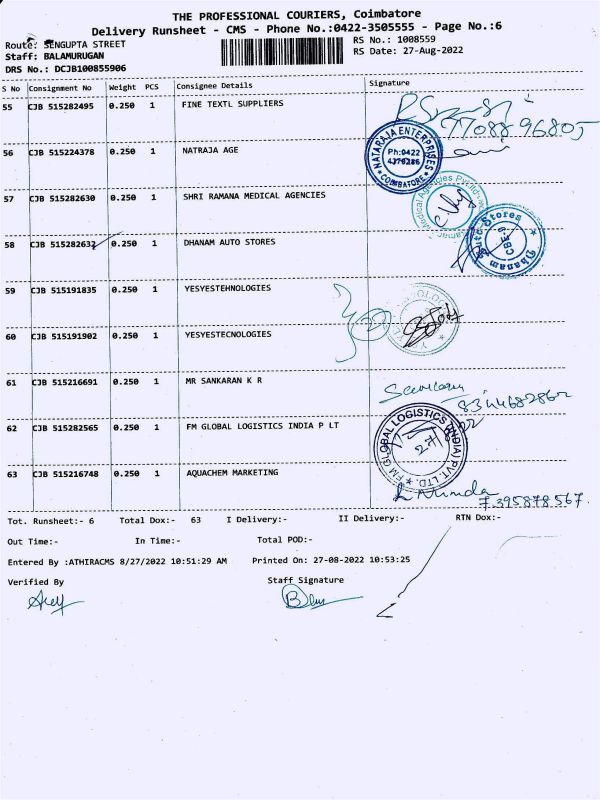 THE PROFESSIONAL COURIERS, Coimbatore
Delivery Runsheet - CMS - Phone No.:0422-3505555 - Page No.:6
Route: SENGUPTA STREET
RS No.: 1008559
Staff: BALAMURUGAN
RS Date: 27-Aug-2022
DRS No.: DCJB100855906
S No Consignment No Weight PCS Consignee Details Signature
55 CJB 515282495 0.250 1 FINE TEXTL SUPPLIERS
77088 96805
56 CJB 515224378 0.250 1 NATRAJA AGE
NATARAJA ENTERPRISES
Ph:0422
4376286
COIMBATORE
57 CJB 515282630 0.250 1 SHRI RAMANA MEDICAL AGENCIES
Medical Agencies Pvt
58 CJB 515282632 0.250 1 DHANAM AUTO STORES
Dhanam Auto Stores
CBE-9
59 CJB 515191835 0.250 1 YESYESTEHNOLOGIES
60 CJB 515191902 0.250 1 YESYESTECNOLOGIES
61 CJB 515216691 0.250 1 MR SANKARAN K R
62 CJB 515282565 0.250 1 FM GLOBAL LOGISTICS INDIA P LT
FM GLOBAL LOGISTICS (INDIA) PVT. LTD.
63 CJB 515216748 0.250 1 AQUACHEM MARKETING
7395878567.
Tot. Runsheet:- 6 Total Dox:- 63 I Delivery:- II Delivery:- RTN Dox:-
Out Time:- In Time:- Total POD:-
Entered By :ATHIRACMS 8/27/2022 10:51:29 AM Printed On: 27-08-2022 10:53:25
Verified By Staff Signature